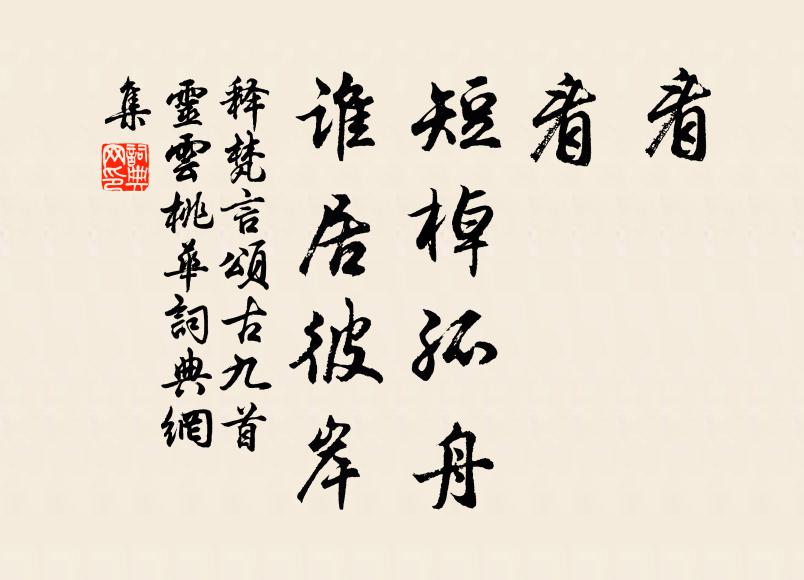 看
看
短棹孤舟
谁居彼岸
释梵言頌古九首
靈雲桃華詞典網
集
詞典网印